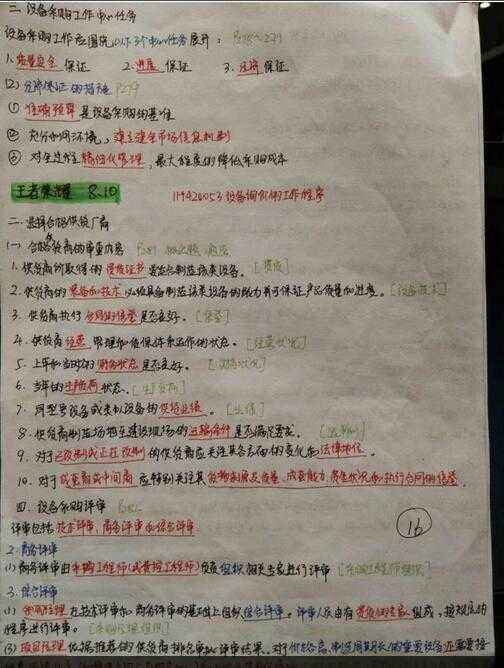 二、设备采购工作中心任务
设备采购工作应围绕以下3个中心任务展开：
1. 质量安全保证 2. 进度保证 3. 经济保证
(2) 经济保证的措施 P279
① 准确预算是设备采购的基准
② 充分询问环境，建立健全市场信息机制
③ 对全过程精细化管理，最大程度的降低采购成本
王者荣耀 8.10 1H420053设备询价的工作程序
二、选择合格供货厂商
(一) 合格供货商的审查内容 P281
1. 供货商所取得的资质证书要适合制造该类设备。
2. 供货商的装备和技术必须具备制造该类设备的能力并可保证产品质量和进度。[设备技术]
3. 供货商执行合同的信誉是否良好。[信誉]
4. 供货商经营管理和质保体系运作的状态。[经营状况]
5. 上年和当时的财务状态是否良好。
6. 当年的生产负荷状态。[生产负荷]
7. 同型号设备或类似设备的供货业绩。[业绩]
8. 供货商制造场地至建设现场的运输条件是否满足要求。
9. 对于已改制或正在改制的供货商应关注其各方面的变化和法律地位。
10. 对于成套商或中间商应特别关注其货物来源及质量、成套能力、资金状况和执行合同的信誉。
四、设备采购评审
评审包括技术评审、商务评审和综合评审
2. 商务评审
(1) 商务评审由采购工程师(或费控工程师)负责组织相关专家进行评审
3. 综合评审
(1) 采购经理在技术评审和商务评审的基础上组织综合评审。评审人员由有资质的专家组成，按规定的
程序进行评审。
(3) 项目经理依据推荐的供货商排名审批评审结果。对于价格高、制造周期长的重要设备还需要按
16